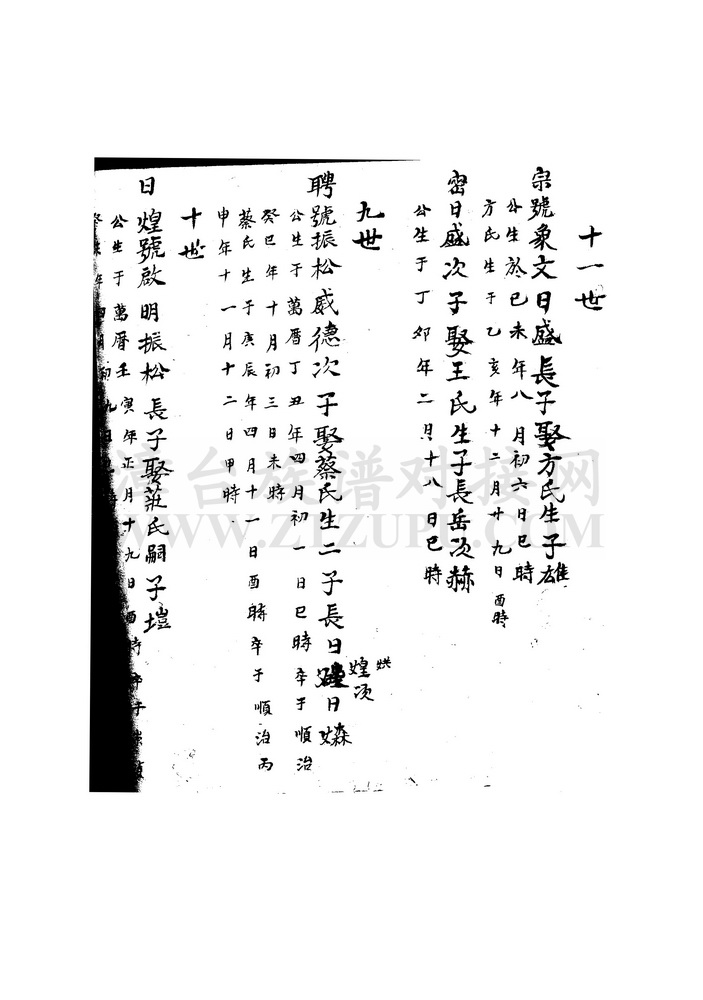 十一世
宗號象文日盛長子娶方氏生子雄
公生於己未年八月初六日巳時
方氏生于乙亥年十二月廿九日酉時
密日盛次子娶王氏生子長岳次赫
公生于丁卯年二月十八日巳時
九世
聘號振松威德次子娶蔡氏生二子長日煌次日
公生于萬曆丁丑年四月初一日巳時卒于順治
癸巳年十月初三日未時
蔡氏生于庚辰年四月十一日酉時卒于順治丙
申年十一月十二日甲時
十世
日煌號啟明振松長子娶莊氏嗣子塏
公生于萬曆壬寅年正月十九日酉時卒于
年四月初九日時
漳台族谱对接网
WWW.ZTZUPU.COM